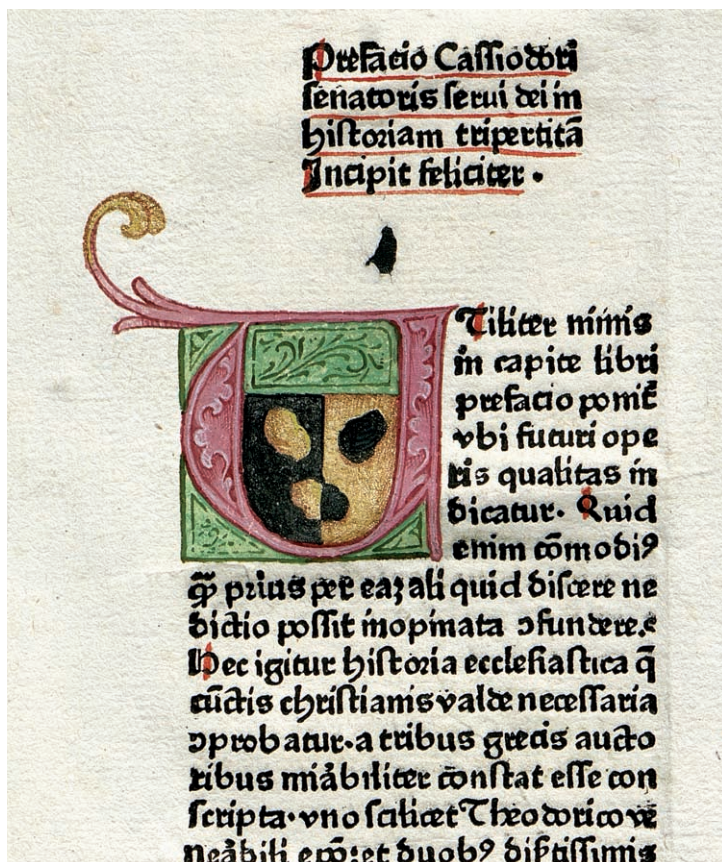 Prefacio Cassiodori
senatoris serui dei in
historiam tripertitā
Incipit feliciter .
UTiliter nimis
in capite libri
prefacio ponit̄
vbi futuri ope
ris qualitas in
dicatur. Quid
enim cōmodiꝰ
qꝫ prius per eaꝫ ali quid discere ne
dictio possit inopinata ɔfundere.
Hec igitur historia ecclesiastica q̄
cūctis christianis valde necessaria
ɔprobatur. a tribus grecis aucto
ribus mirābiliter cōnstat esse con
scripta. vno scilicet Theodorico ve
nerābili ep̄o: et duobꝰ disertissimis